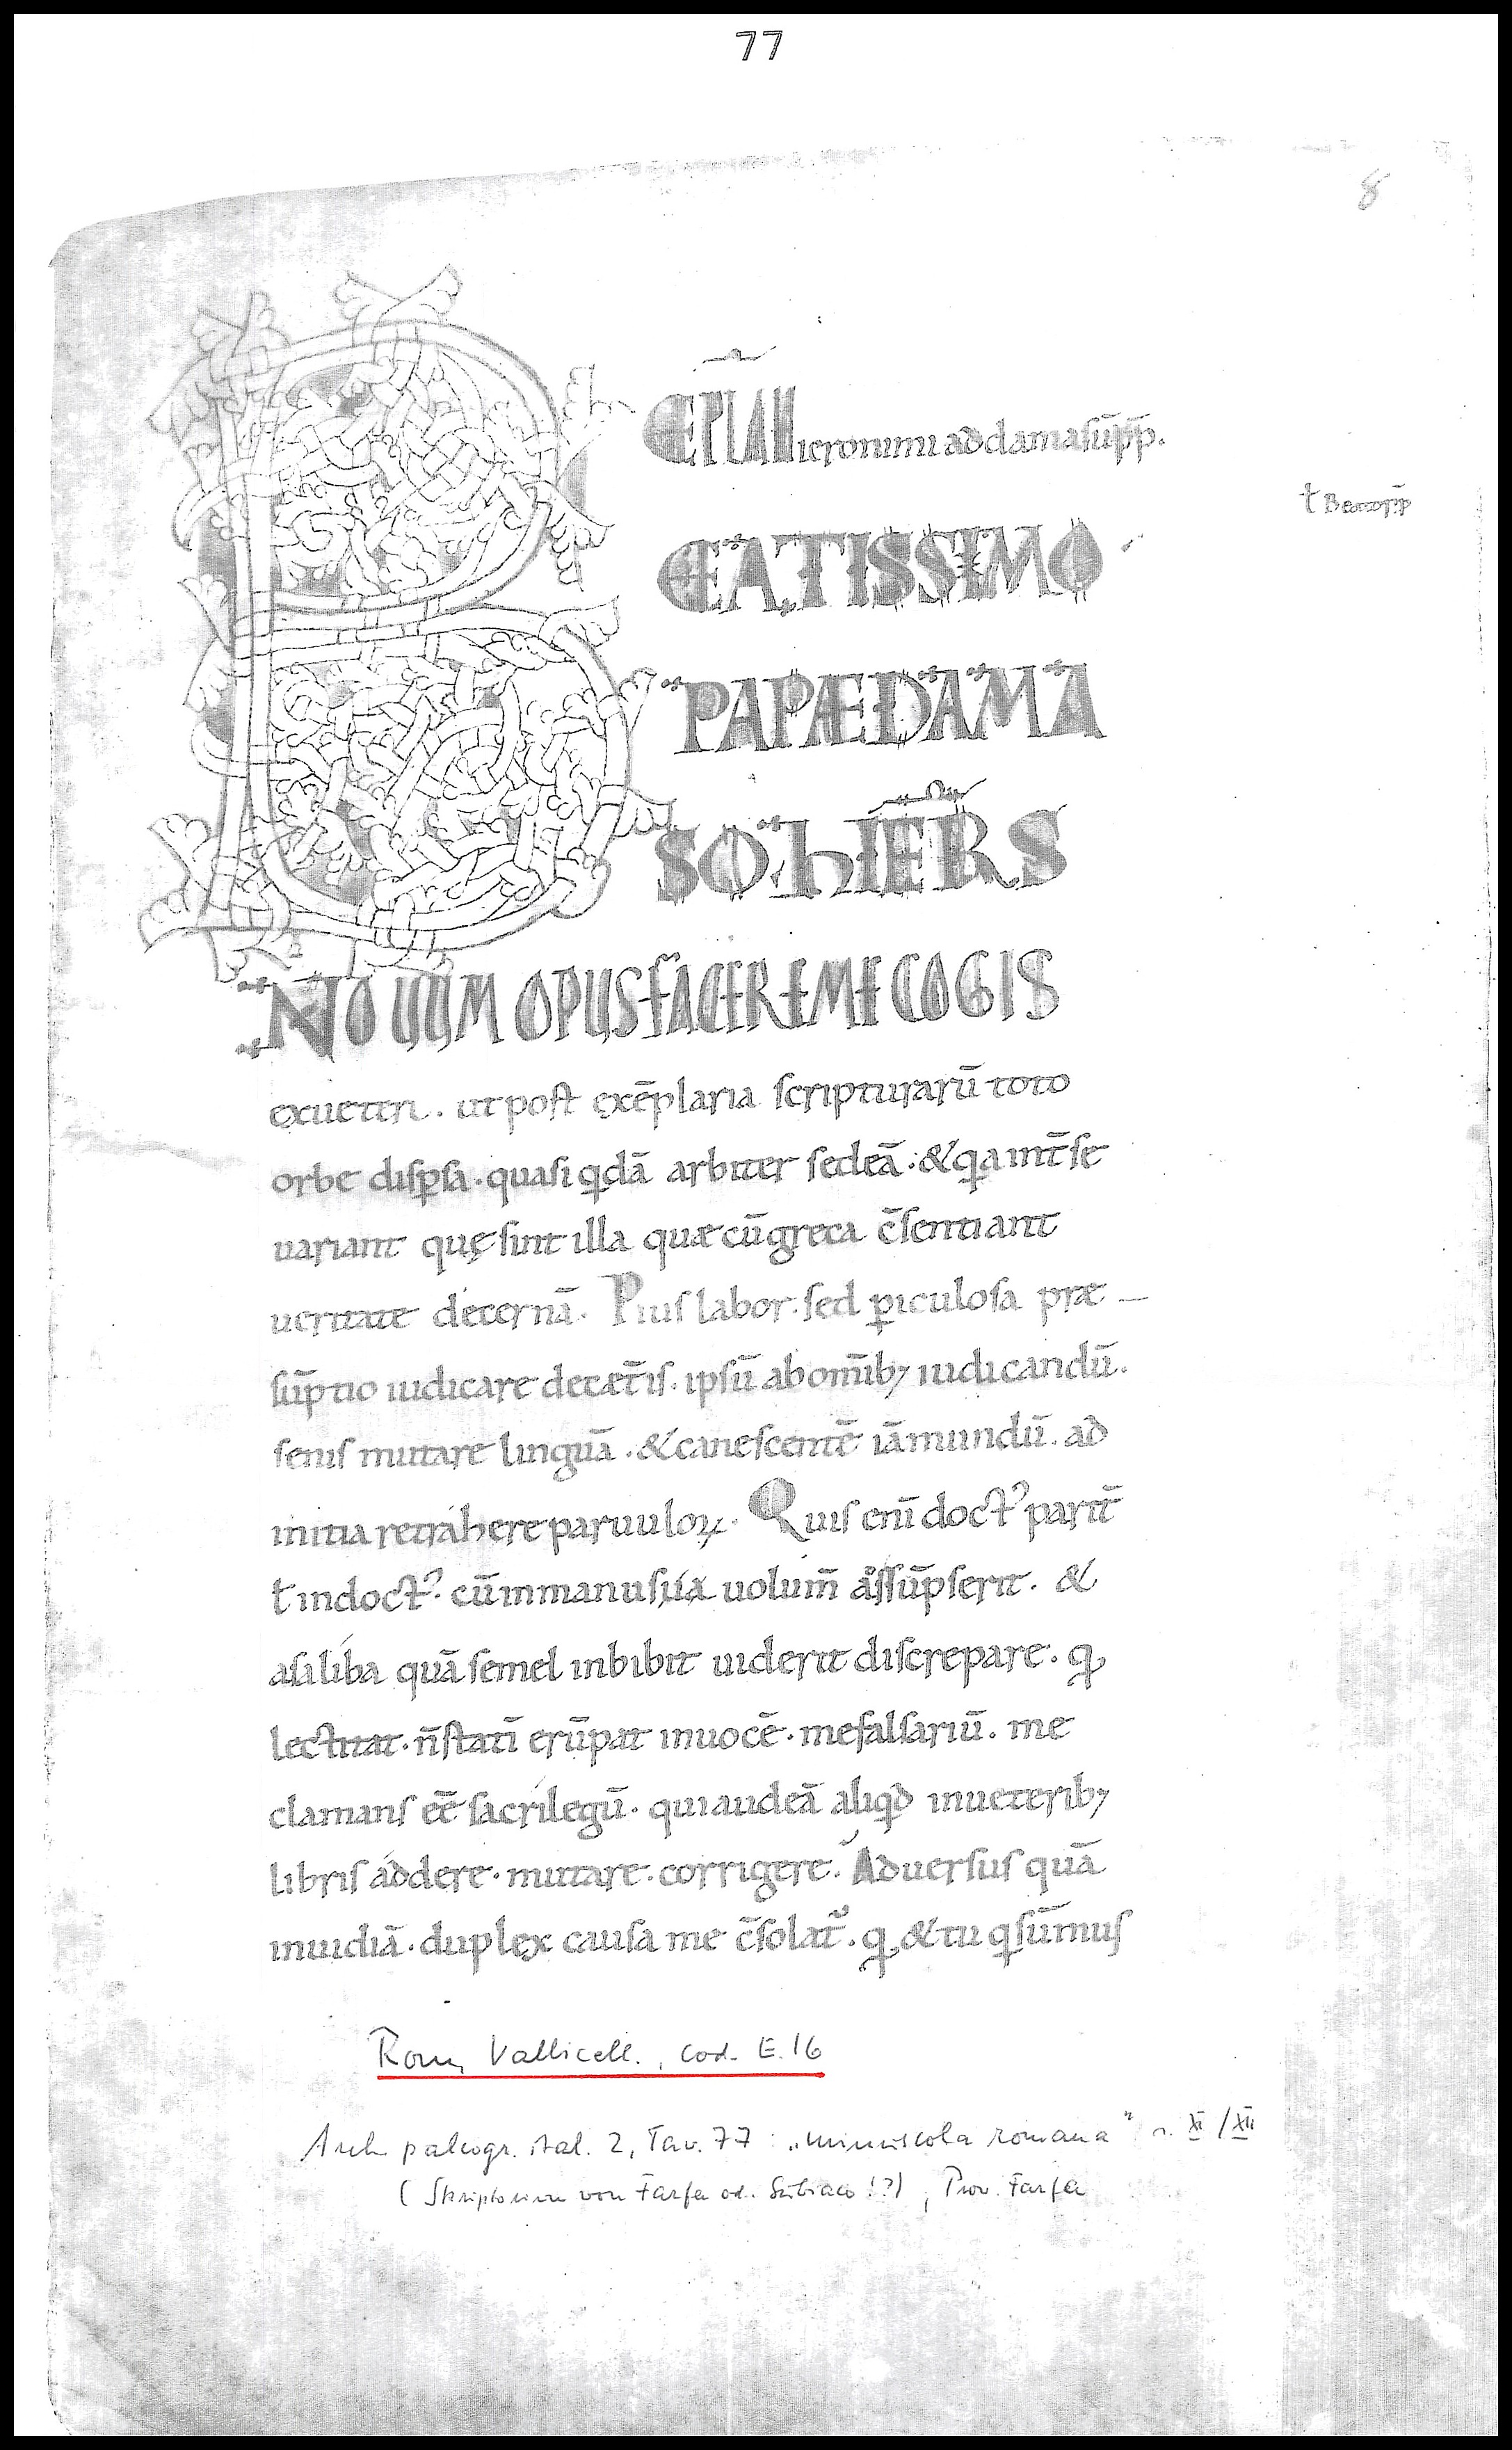 77
8
EPLA Hieronimi ad damasū pp̄.
ł Beato pp
B EATISSIMO
PAPÆ DAMA
SO HIERS
NOUUM OPUS FACERE ME COGIS
exueteri. ut post exēplaria scripturarū toto
orbe disꝑsa. quasi qdā arbiter sedeā. & qa int̄ se
uariant quę sint illa quæ cū greca c̄sentiant
ueritate decernā. Pius labor. sed ꝑiculosa præ—
sūptio iudicare de cæt̄is. ipsū ab om̄ib; iudicandū.
senis mutare linguā. & canescentē iā mundū. ad
initia retráhere paruuloꝝ. Quis enī doctꝰ parit̄
ł indoctꝰ. cū in manu suá uolum̄ assūpserit. &
asalíba quā semel inbibit uiderit discrepare. q
lectitat. n̄ statī erūpat in uocē. me falsariū. me
clamans eē sacrílegū. qui audeā aliqd in ueterib;
libris áddere. mutare. corrigere. Aduersus quā
inuidiā. duplex causa me c̄solat̄. q & tu q sūmus
Rom, Vallicell., Cod. E.16
Arch. paleogr. ital. 2, Tav. 77: „minuscola romana" s. XI/XII
(Skriptorium von Farfa od. Subiaco !?), Prov. Farfa